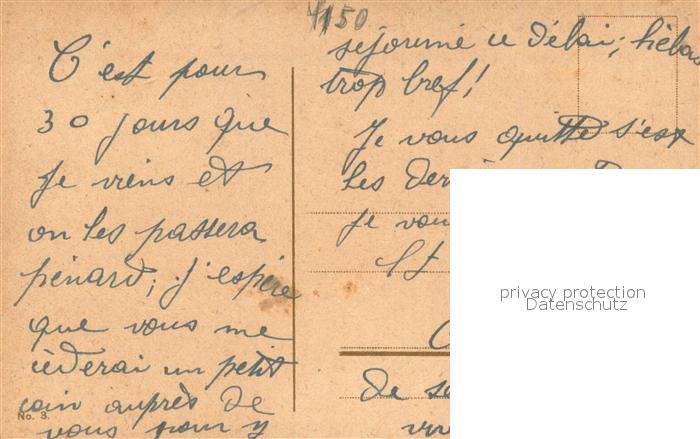 4150
C'est pour
30 jours que
je viens et
on les passera
pénard; j'espère
que vous me
cèderai un petit
coin auprès de
vous pour y
No. 3.
séjourné ce délai; hèlas
trop bref!
Je vous quitte s'est
les der
je vou
De se
privacy protection
Datenschutz